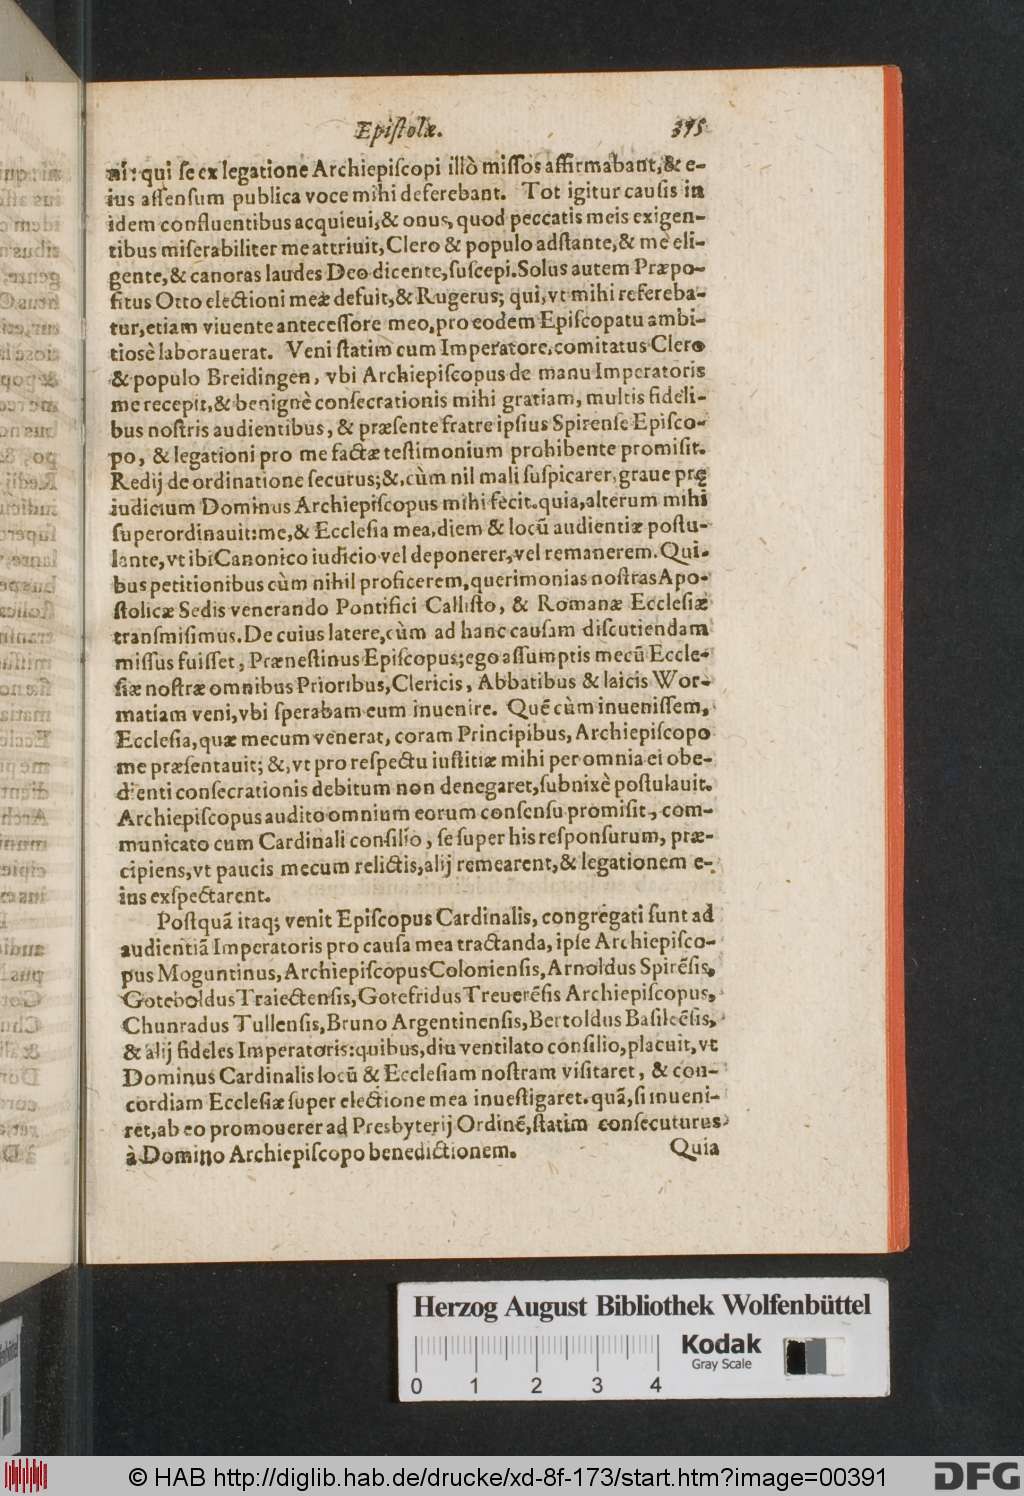 Epiſtolæ. 375
ni: qui ſe ex legatione Archiepiſcopi illò miſſos affirmabant, & e-
ius aſſenſum publica voce mihi deferebant. Tot igitur cauſis in
idem confluentibus acquieui, & onus, quod peccatis meis exigen-
tibus miſerabiliter me attriuit, Clero & populo adſtante, & me eli-
gente, & canoras laudes Deo dicente, ſuſcepi. Solus autem Præpo-
ſitus Otto electioni meæ defuit, & Rugerus; qui, vt mihi refereba-
tur, etiam viuente anteceſſore meo, pro eodem Epiſcopatu ambi-
tioſè laborauerat. Veni ſtatim cum Imperatore, comitatus Clero
& populo Breidingen, vbi Archiepiſcopus de manu Imperatoris
me recepit, & benignè conſecrationis mihi gratiam, multis fideli-
bus noſtris audientibus, & præſente fratre ipſius Spirenſe Epiſco-
po, & legationi pro me factæ teſtimonium prohibente promiſit.
Redij de ordinatione ſecurus; &, cùm nil mali ſuſpicarer, graue prę
iudicium Dominus Archiepiſcopus mihi fecit. quia, alterum mihi
ſuperordinauit: me, & Eccleſia mea, diem & locū audientiæ poſtu-
lante, vt ibi Canonico iudicio vel deponerer, vel remanerem. Qui-
bus petitionibus cùm nihil proficerem, querimonias noſtras Apo-
ſtolicæ Sedis venerando Pontifici Calliſto, & Romanæ Eccleſiæ
tranſmiſimus. De cuius latere, cùm ad hanc cauſam diſcutiendam
miſſus fuiſſet, Præneſtinus Epiſcopus; ego aſſumptis mecū Eccle-
ſiæ noſtræ omnibus Prioribus, Clericis, Abbatibus & laicis Wor-
matiam veni, vbi ſperabam eum inuenire. Quē cùm inueniſſem,
Eccleſia, quæ mecum venerat, coram Principibus, Archiepiſcopo
me præſentauit; &, vt pro reſpectu iuſtitiæ mihi per omnia ei obe-
dienti conſecrationis debitum non denegaret, ſubnixè poſtulauit.
Archiepiſcopus audito omnium eorum conſenſu promiſit, com-
municato cum Cardinali conſilio, ſe ſuper his reſponſurum, præ-
cipiens, vt paucis mecum relictis, alij remearent, & legationem e-
ius exſpectarent.
Poſtquā itaq; venit Epiſcopus Cardinalis, congregati ſunt ad
audientiā Imperatoris pro cauſa mea tractanda, ipſe Archiepiſco-
pus Moguntinus, Archiepiſcopus Colonienſis, Arnoldus Spirēſis,
Goteboldus Traiectenſis, Gotefridus Treuerēſis Archiepiſcopus,
Chunradus Tullenſis, Bruno Argentinenſis, Bertoldus Baſileēſis,
& alij fideles Imperatoris: quibus, diu ventilato conſilio, placuit, vt
Dominus Cardinalis locū & Eccleſiam noſtram viſitaret, & con-
cordiam Eccleſiæ ſuper electione mea inueſtigaret. quā, ſi inueni-
ret, ab eo promouerer ad Presbyterij Ordinē, ſtatim conſecuturus
à Domino Archiepiſcopo benedictionem. Quia
Herzog August Bibliothek Wolfenbüttel
Kodak
Gray Scale
0 1 2 3 4
© HAB http://diglib.hab.de/drucke/xd-8f-173/start.htm?image=00391
DFG